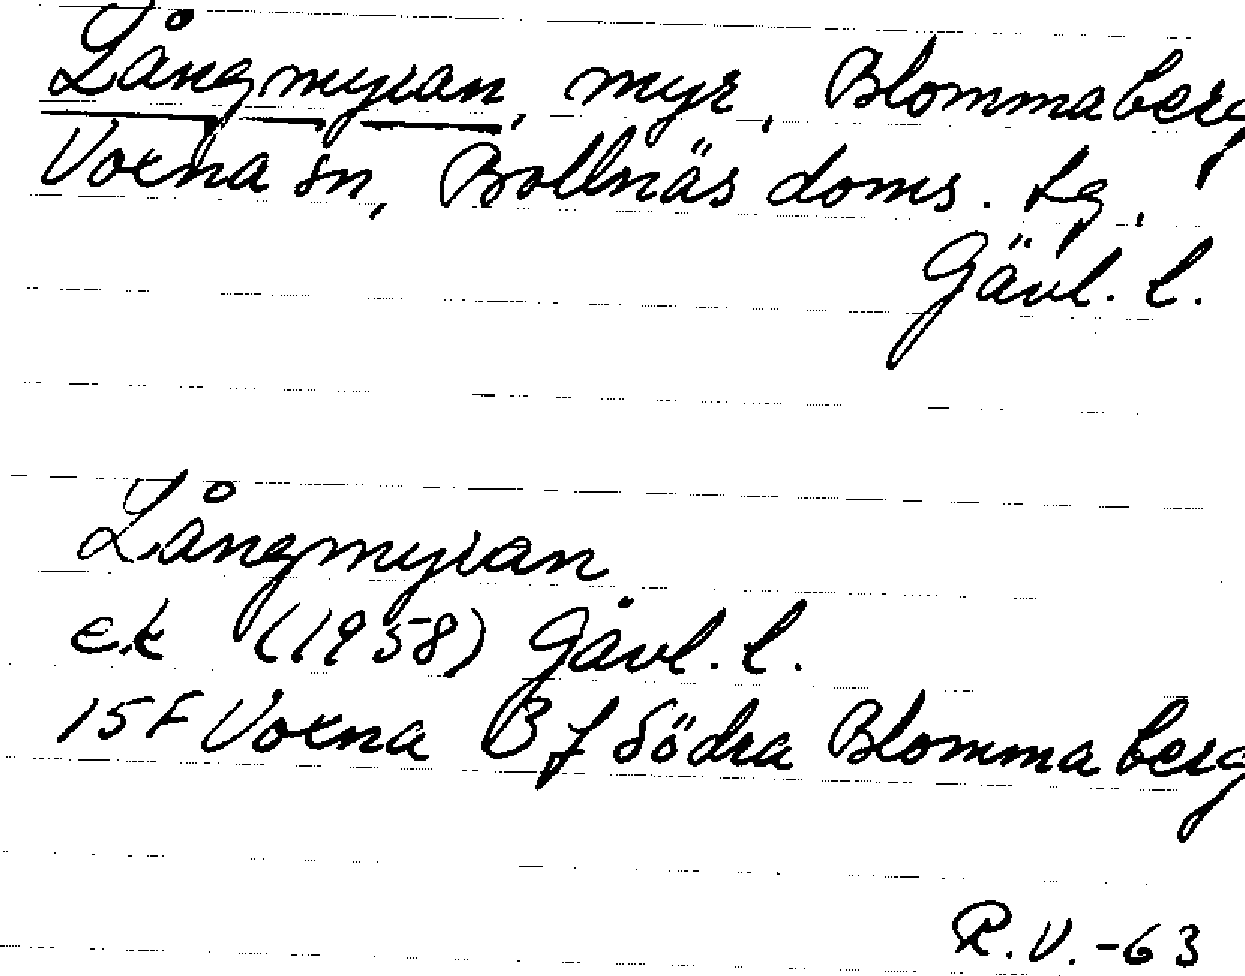 Långmyran, myr, Blommaberg
Voxna sn, Bollnäs doms. tg,
Gävl. l.
Långmyran
ek (1958) Gävl. l.
15F Voxna B f Södra Blommaberg
R.V. -63